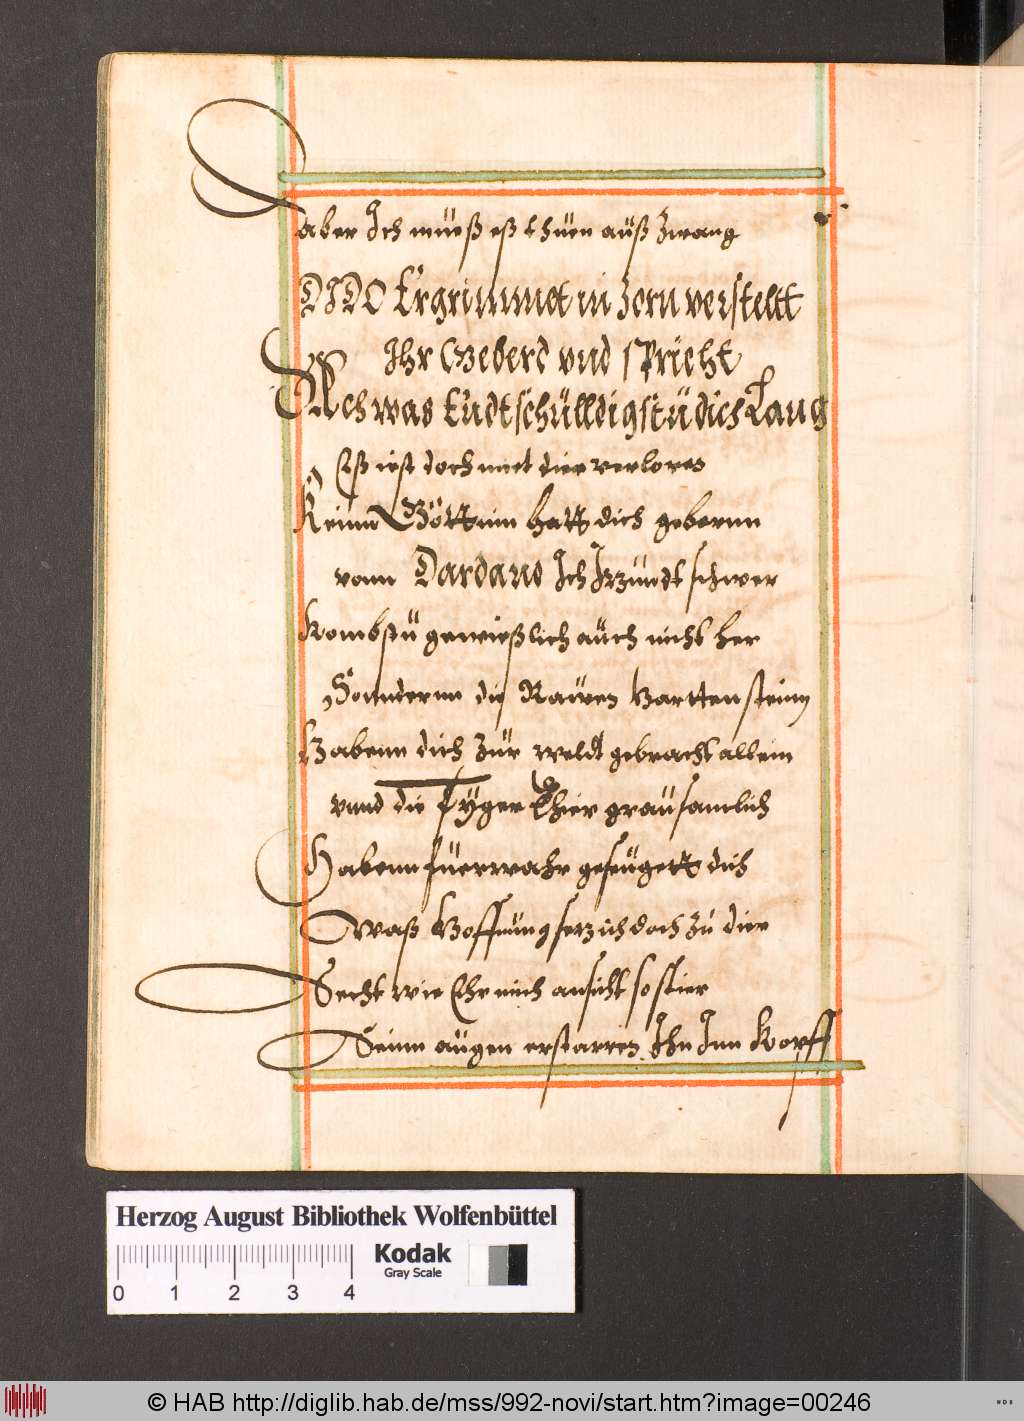 aber Ich müeß eß thüen auß Zwang
DIDO Ergrimmet in Zorn verstellt
Ihr Geberd vnd spricht
Ach was Endtschülldigstü dich Lang
Eß ist doch mit dier verlores
Keinn Göttinn hatt dich gebornn
vonn Dardano Ich Izündt schwer
Kombstü gewießlich aüch nicht her
Sonndernn die Rawen Hartten steinn
Habenn dich Zür weldt gebracht allein
vnnd die Tyger Thier graüsamlich
Habenn füerwahr geseügett dich
Waß Hoffnüng sez ich doch zü dier
Secht wie Ehr mich ansicht so stier
Seinn aügen erstarren Ihn Inn Kopff
Herzog August Bibliothek Wolfenbüttel
Kodak
Gray Scale
0 1 2 3 4
© HAB http://diglib.hab.de/mss/992-novi/start.htm?image=00246